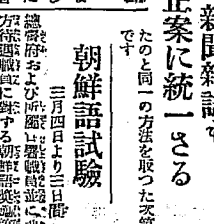 新聞雑誌で
正案に統一さる
たのと同一の方法を取つた
です
朝鮮語試驗
三月四日より三日間
總督府および所屬官署職員並に
方待遇職員に對する朝鮮語奬勵